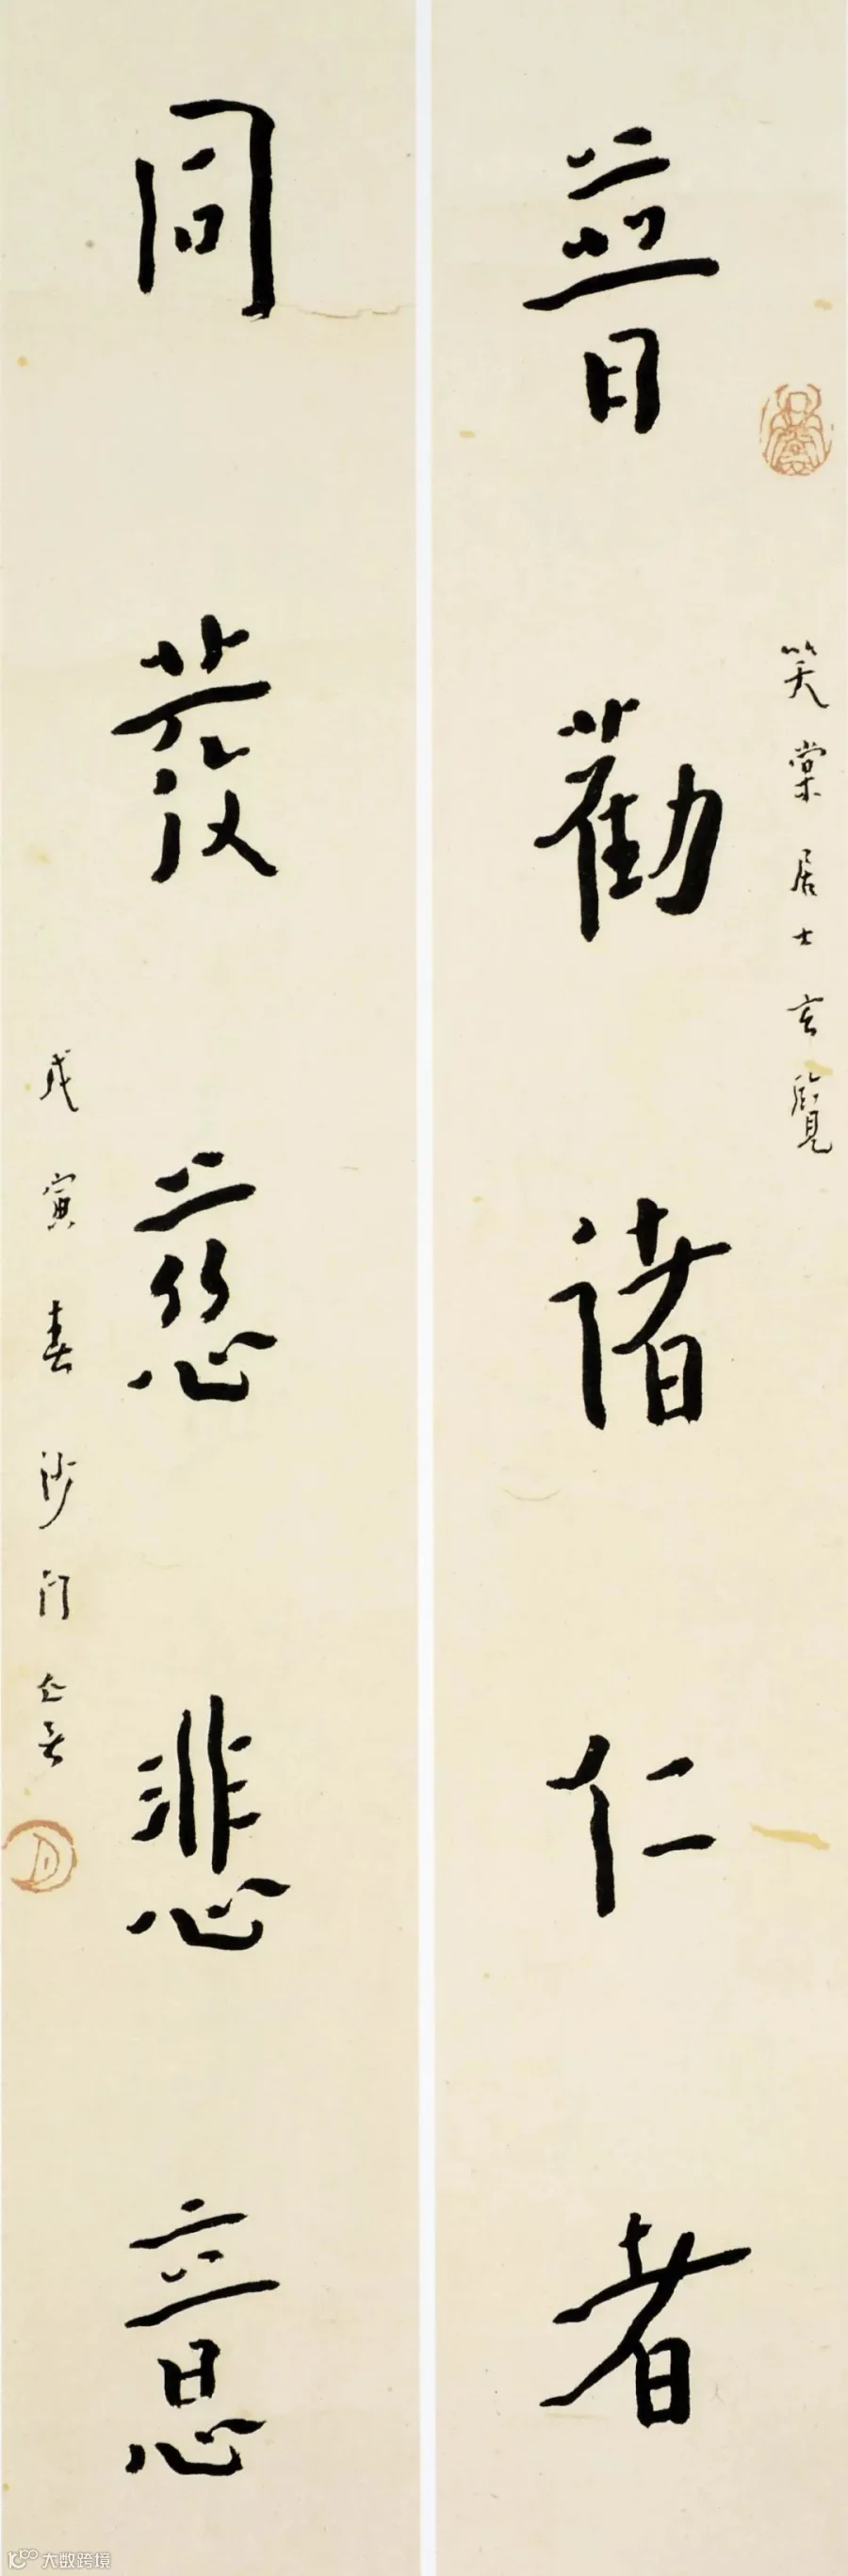 笑棠居士玄覽
普勸諸仁者
同發慈悲意
戊寅春沙門一音
大数跨境